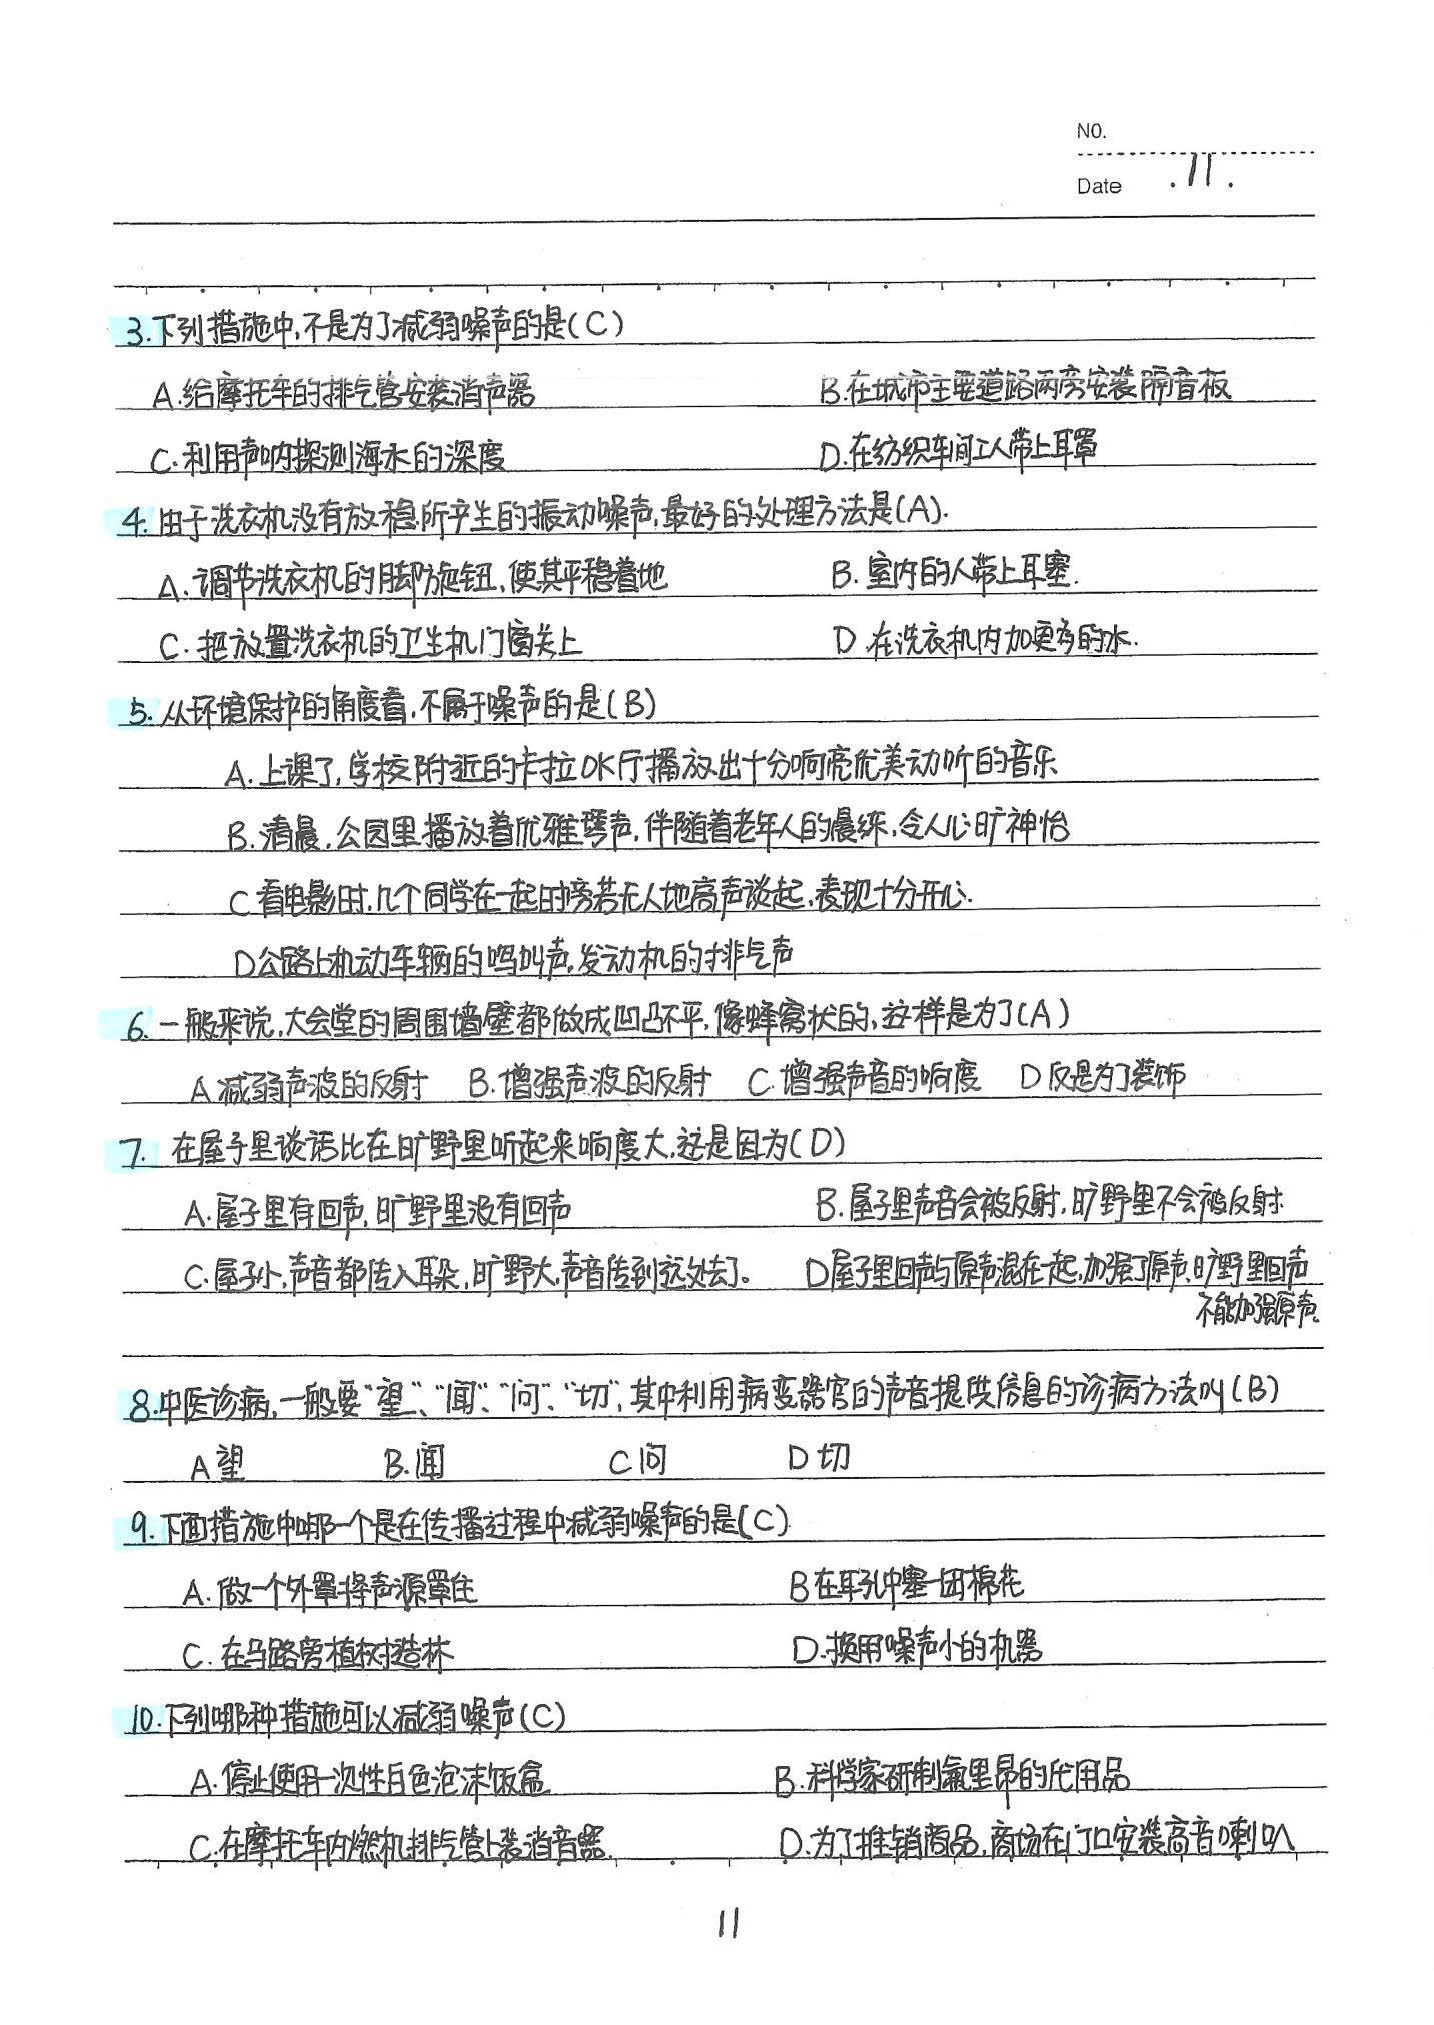 NO.
Date .11.
3.下列措施中,不是为了减弱噪声的是(C)
A.给摩托车的排气管安装消声器 B.在城市主要道路两旁安装隔音板
C.利用声呐探测海水的深度 D.在纺织车间工人带上耳罩
4.由于洗衣机没有放稳所产生的振动噪声,最好的处理方法是(A).
A.调节洗衣机的脚旋钮,使其平稳着地 B.室内的人带上耳塞.
C.把放置洗衣机的卫生机门窗关上 D 在洗衣机内加更多的水.
5.从环境保护的角度看,不属于噪声的是(B)
A.上课了,学校附近的卡拉OK厅播放出十分响亮优美动听的音乐
B.清晨,公园里播放着优雅琴声,伴随着老年人的晨练,令人心旷神怡
C 看电影时,几个同学在一起时旁若无人地高声谈起,表现十分开心.
D公路上机动车辆的鸣叫声,发动机的排气声
6.一般来说,大会堂的周围墙壁都做成凹凸不平,像蜂窝状的,这样是为了(A)
A 减弱声波的反射 B.增强声波的反射 C.增强声音的响度 D 反是为了装饰
7. 在屋子里谈话比在旷野里听起来响度大,这是因为(D)
A.屋子里有回声,旷野里没有回声 B.屋子里声音会被反射,旷野里不会被反射.
C.屋子小,声音都传入耳朵,旷野大,声音传到远处去了。 D屋子里回声与原声混在一起,加强了原声,旷野里回声
不能加强原声.
8.中医诊病,一般要“望”、“闻”、“问”、“切”,其中利用病变器官的声音提供信息的诊病方法叫(B)
A 望 B.闻 C 问 D 切
9.下面措施中哪一个是在传播过程中减弱噪声的是(C)
A.做一个外罩将声源罩住 B 在耳孔中塞一团棉花
C.在马路旁植树造林 D.换用噪声小的机器
10.下列哪种措施可以减弱噪声(C)
A.停止使用一次性白色泡沫饭盒 B.科学家研制氟里昂的代用品
C.在摩托车内燃机排气管上装消音器. D.为了推销商品,商场在门口安装高音喇叭
11